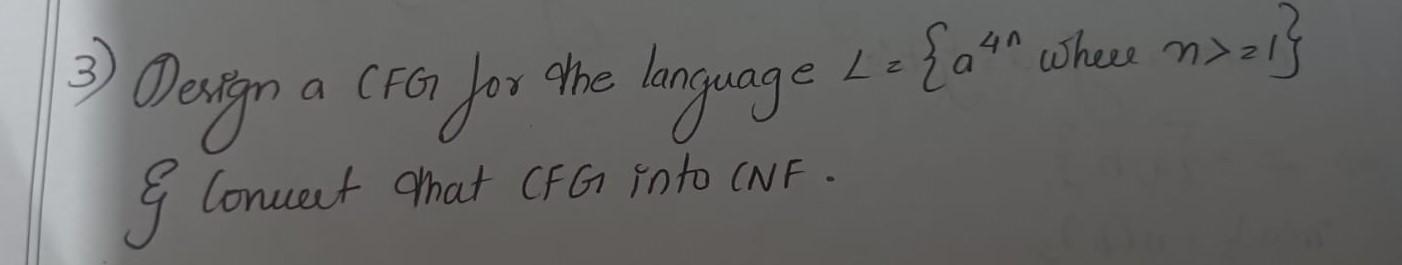 3) Design a CFG for the language L = {a⁴ⁿ where n>=1}
& Convert that CFG into CNF.